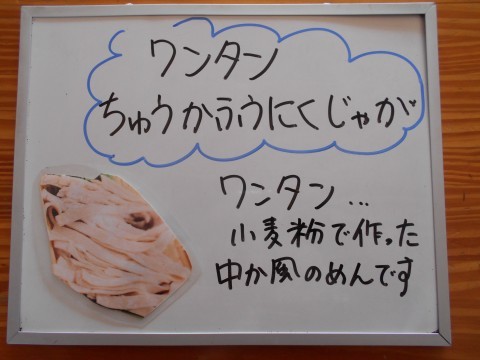 ワンタン
ちゅうかふうにくじゃが
ワンタン...
小麦粉で作った
中か風のめんです